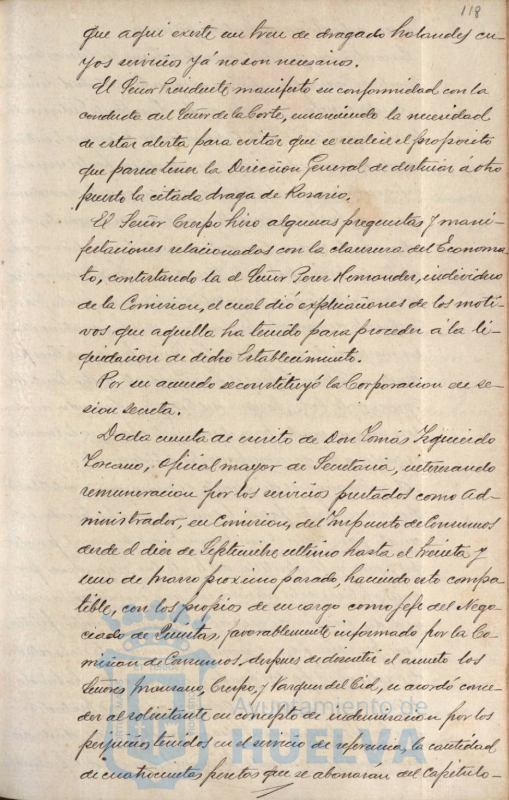 118
que aqui existe un tren de dragado holandés cu-
yos servicios yá no son necesarios.
El Señor Presidente manifestó su conformidad con la
conducta del Señor de la Corte, enareciendo la necesidad
de estar alerta para evitar que se realice el propósito
que parece tener la Direccion General de destinar á otro
puerto la citada draga de Rosario.
El Señor Crespo hizo algunas preguntas y mani-
festaciones relacionadas con la clausura del Economa-
to, contestando la el Señor Perez Hernandez, individuo
de la Comision, el cual dió explicaciones de los moti-
vos que aquella ha tenido para proceder á la li-
quidacion de dicho Establecimiento.
Por su acuerdo se constituyó la Corporacion en se-
sion secreta.
Dada cuenta de escrito de Don Tomás Izquierdo
Toscano, Oficial mayor de Secretaria, interesando
remuneracion por los servicios prestados como Ad-
ministrador, en Comision, del Impuesto de Consumos
desde el diez de Septiembre ultimo hasta el treinta y
uno de Marzo proximo pasado, haciendo esto compa-
tible, con los propios de su cargo como Jefe del Nego-
ciado de Quintas, favorablemente informado por la Co-
mision de Consumos, despues de discutir el asunto los
Señores Moreno, Crespo, y Vazquez del Cid, se acordó conce-
der al solicitante en concepto de indemnizacion por los
perjuicios tenidos en el servicio de referencia, la cantidad
de cuatrocientas pesetas que se abonarán del Capitulo-
Ayuntamiento de
HUELVA